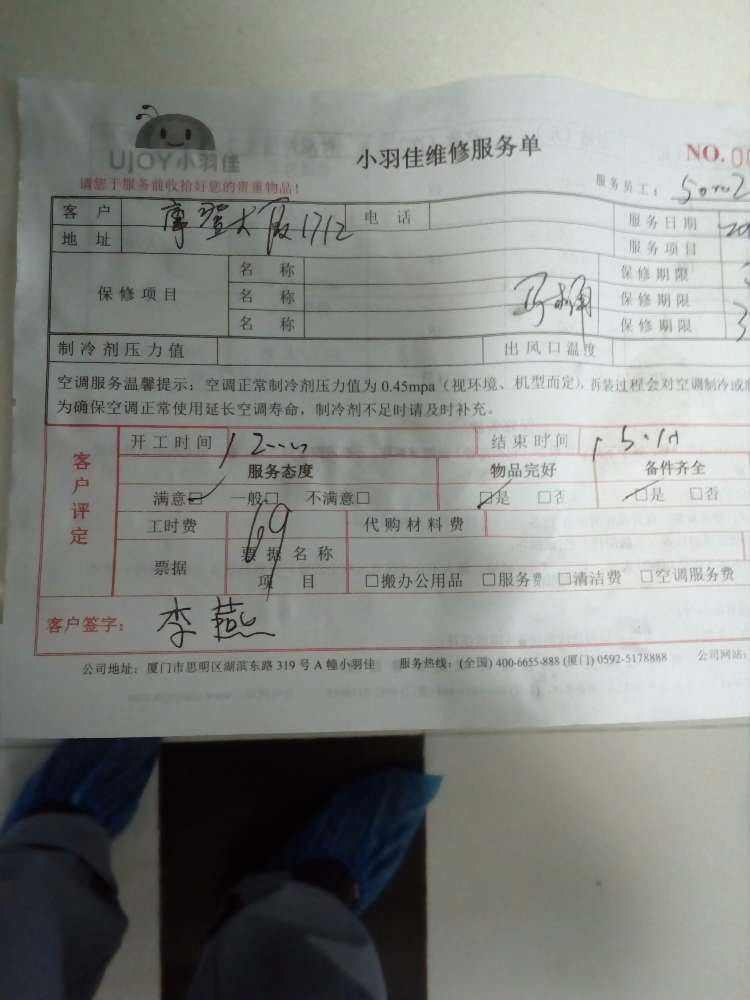 UJOY小羽佳
小羽佳维修服务单
NO.00
请您于服务前收拾好您的贵重物品!
服务员工:
客 户 摩登大厦1712 电 话 服务日期
地 址 服务项目
保修项目 名 称 保修期限
名 称 马桶 保修期限
名 称 保修期限 3
制冷剂压力值 出风口温度
空调服务温馨提示:空调正常制冷剂压力值为 0.45mpa(视环境、机型而定),拆装过程会对空调制冷或
为确保空调正常使用延长空调寿命,制冷剂不足时请及时补充。
客户评定
开工时间 结束时间
服务态度 物品完好 备件齐全
满意☑ 一般□ 不满意□ ☑是 □否 ☑是 □否
工时费 69 代购材料费
票据 票据名称
项 目 □搬办公用品 □服务费 □清洁费 □空调服务费
客户签字: 李燕
公司地址:厦门市思明区湖滨东路 319 号 A 幢小羽佳 服务热线:(全国) 400-6655-888 (厦门) 0592-5178888 公司网站: